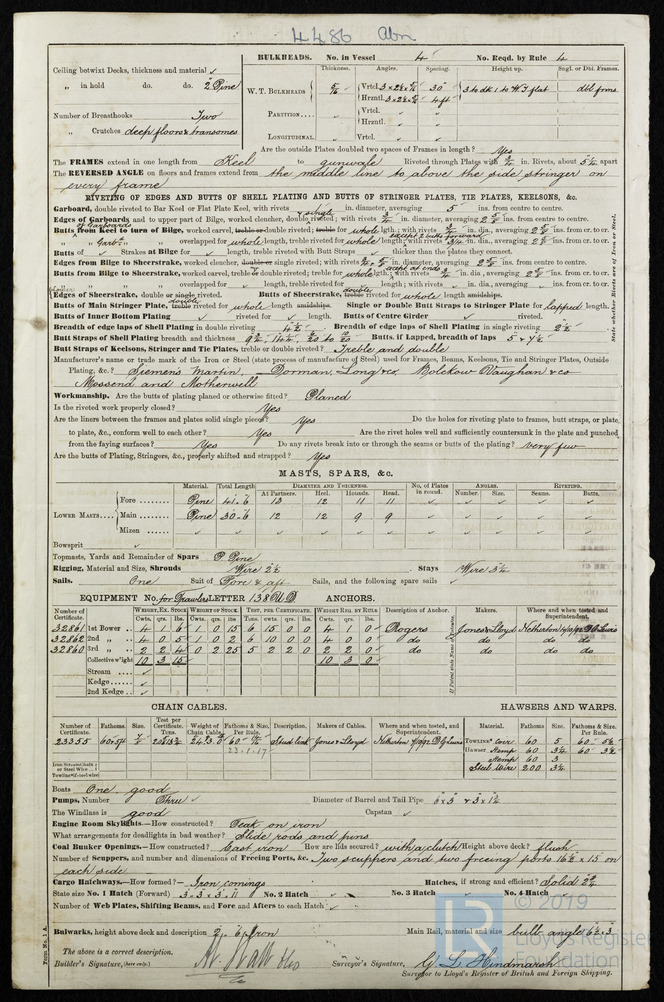 4486 Abn
BULKHEADS. No. in Vessel 4 No. Reqd. by Rule 4
Ceiling betwixt Decks, thickness and material ✓
Thickness. Angles. Spacing. Height up. Sngl. or Dbl. Frames.
„ in hold do. do. 2 Pine
W. T. BULKHEADS Vrtcl. 30" 3 to dk 1 to W.T. flat dbl frms
Hrzntl. 4 ft
Number of Breasthooks Two
PARTITION Vrtcl.
Hrzntl.
„ Crutches deep floors & transomes
LONGITUDINAL Vrtcl.
Are the outside Plates doubled two spaces of Frames in length? Yes
The FRAMES extend in one length from Keel to gunwale Riveted through Plates with ¾ in. Rivets, about 5¼ apart
The REVERSED ANGLE on floors and frames extend from the middle line to above the side stringer on
every frame
RIVETING OF EDGES AND BUTTS OF SHELL PLATING AND BUTTS OF STRINGER PLATES, TIE PLATES, KEELSONS, &c.
Garboard, double riveted to Bar Keel or Flat Plate Keel, with rivets in. diameter, averaging 5 ins. from centre to centre.
Edges of Garboards and to upper part of Bilge, worked clencher, double riveted; single with rivets in. diameter, averaging ins. from centre to centre.
of Garboards
Butts from Keel to turn of Bilge, worked carvel, treble or double riveted; treble for whole lgth; with rivets in. dia., averaging ins. from cr. to cr.
except 2 butts forward
„ „ Garbds „ overlapped for whole length; treble riveted for whole length; with rivets 3/4 in. dia., averaging ins. from cr. to cr.
Butts of ✓ Strakes at Bilge for ✓ length, treble riveted with Butt Straps ✓ thicker than the plates they connect.
Edges from Bilge to Sheerstrake, worked clencher, double or single riveted; with rivets in. diameter, averaging ins. from centre to centre.
except at ends
Butts from Bilge to Sheerstrake, worked carvel, treble riveted; treble for whole lgth; with rivets in. dia., averaging ins. from cr. to cr.
„ „ „ overlapped for length; treble riveted for length; with rivets in. dia., averaging ins. from cr. to cr.
Edges of Sheerstrake, double or single riveted. Butts of Sheerstrake, double treble riveted for whole length amidships.
Butts of Main Stringer Plate, double treble riveted for whole length amidships. Single or Double Butt Straps to Stringer Plate for lapped length.
Butts of Inner Bottom Plating ✓ riveted for ✓ length. Butts of Centre Girder ✓ riveted for ✓ length.
Breadth of edge laps of Shell Plating in double riveting 4½ Breadth of edge laps of Shell Plating in single riveting
Butt Straps of Shell Plating breadth and thickness Butts, if Lapped, breadth of laps 5 & 7½
Butt Straps of Keelsons, Stringer and Tie Plates, treble or double riveted? Treble and double
Manufacturer's name or trade mark of the Iron or Steel (state process of manufacture of Steel) used for Frames, Beams, Keelsons, Tie and Stringer Plates, Outside
Plating, &c.? Siemens Martin, Dorman, Long & Co, Bolckow Vaughan & co
Mossend and Motherwell
State whether Rivets are of Iron or Steel.
Workmanship. Are the butts of plating planed or otherwise fitted? Planed
Is the riveted work properly closed? Yes
Are the liners between the frames and plates solid single pieces? Yes Do the holes for riveting plate to frames, butt straps, or plate
to plate, &c., conform well to each other? Yes Are the rivet holes well and sufficiently countersunk in the plate and punched
from the faying surfaces? Yes Do any rivets break into or through the seams or butts of the plating? very few
Are the butts of Plating, Stringers, &c., properly shifted and strapped? Yes
MASTS, SPARS, &c.
Material. Total Length. DIAMETER AND THICKNESS. No. of Plates in round. ANGLES. RIVETING.
At Partners. Heel. Hounds. Head. Number. Size. Seams. Butts.
LOWER MASTS Fore Pine 41.6 13 12 11 11
Main Pine 30.6 12 12 9 9
Mizen
Bowsprit ✓
Topmasts, Yards and Remainder of Spars P Pine
Rigging, Material and Size, Shrouds Wire 2½ Stays Wire 3½
Sails. One Suit of Fore & aft Sails, and the following spare sails ✓
EQUIPMENT No. for Trawlers LETTER ANCHORS.
Number of Certificate. WEIGHT, EX. STOCK WEIGHT OF STOCK. TEST, PER CERTIFICATE. WEIGHT REQ. BY RULE Description of Anchor. Makers. Where and when tested and Superintendent.
Cwts. qrs. lbs. Cwts. qrs. lbs. Tons. cwts. qrs. lbs. Cwts. qrs. lbs.
32861 1st Bower 4 1 6 1 0 15 6 15 0 0 4 1 0 Rogers Jones & Lloyd Netherton
32862 2nd „ 4 0 5 1 0 2 6 10 0 0 4 0 0 do do do do
32860 3rd „ 2 2 4 0 2 25 5 2 2 0 2 2 0 do do do do
Collective w'ight 10 3 15 10 3 0
Stream ✓
Kedge ✓
2nd Kedge ✓
CHAIN CABLES. HAWSERS AND WARPS.
Number of Certificate. Fathoms. Size. Test per Certificate. Tons. Weight of Chain Cable. Fathoms & Size Per Rule. Description. Makers of Cables. Where and when tested, and Superintendent. Material. Fathoms Size. Fathoms & Size Per Rule.
23355 Stud link Jones & Lloyd Netherton TOWLINE Coir 60 5
HAWSER Hemp 60 3½
Hemp 60 3
Steel Wire 200 3½
Boats One good
Pumps, Number Three ✓ Diameter of Barrel and Tail Pipe
The Windlass is good Capstan ✓
Engine Room Skylights.—How constructed? Teak on iron
What arrangements for deadlights in bad weather? Slide rods and pins
Coal Bunker Openings.—How constructed? Cast iron How are lids secured? with a clutch Height above deck? flush
Number of Scuppers, and number and dimensions of Freeing Ports, &c. Two scuppers and two freeing ports 16½ × 15 on
each side
Cargo Hatchways.—How formed?— Iron comings Hatches, if strong and efficient? Solid 2½
State size No. 1 Hatch (Forward) 3.3 × 3.11 No. 2 Hatch ✓ No. 3 Hatch No. 4 Hatch
Number of Web Plates, Shifting Beams, and Fore and Afters to each Hatch ✓
Bulwarks, height above deck and description 2.6 Iron Main Rail, material and size bulb angle
The above is a correct description.
Builder's Signature, (here only.) Surveyor's Signature, G. L. Hindmarsh
Surveyor to Lloyd's Register of British and Foreign Shipping.
Form No. 1 A.
© 2019
LR
Lloyd's Register
Foundation